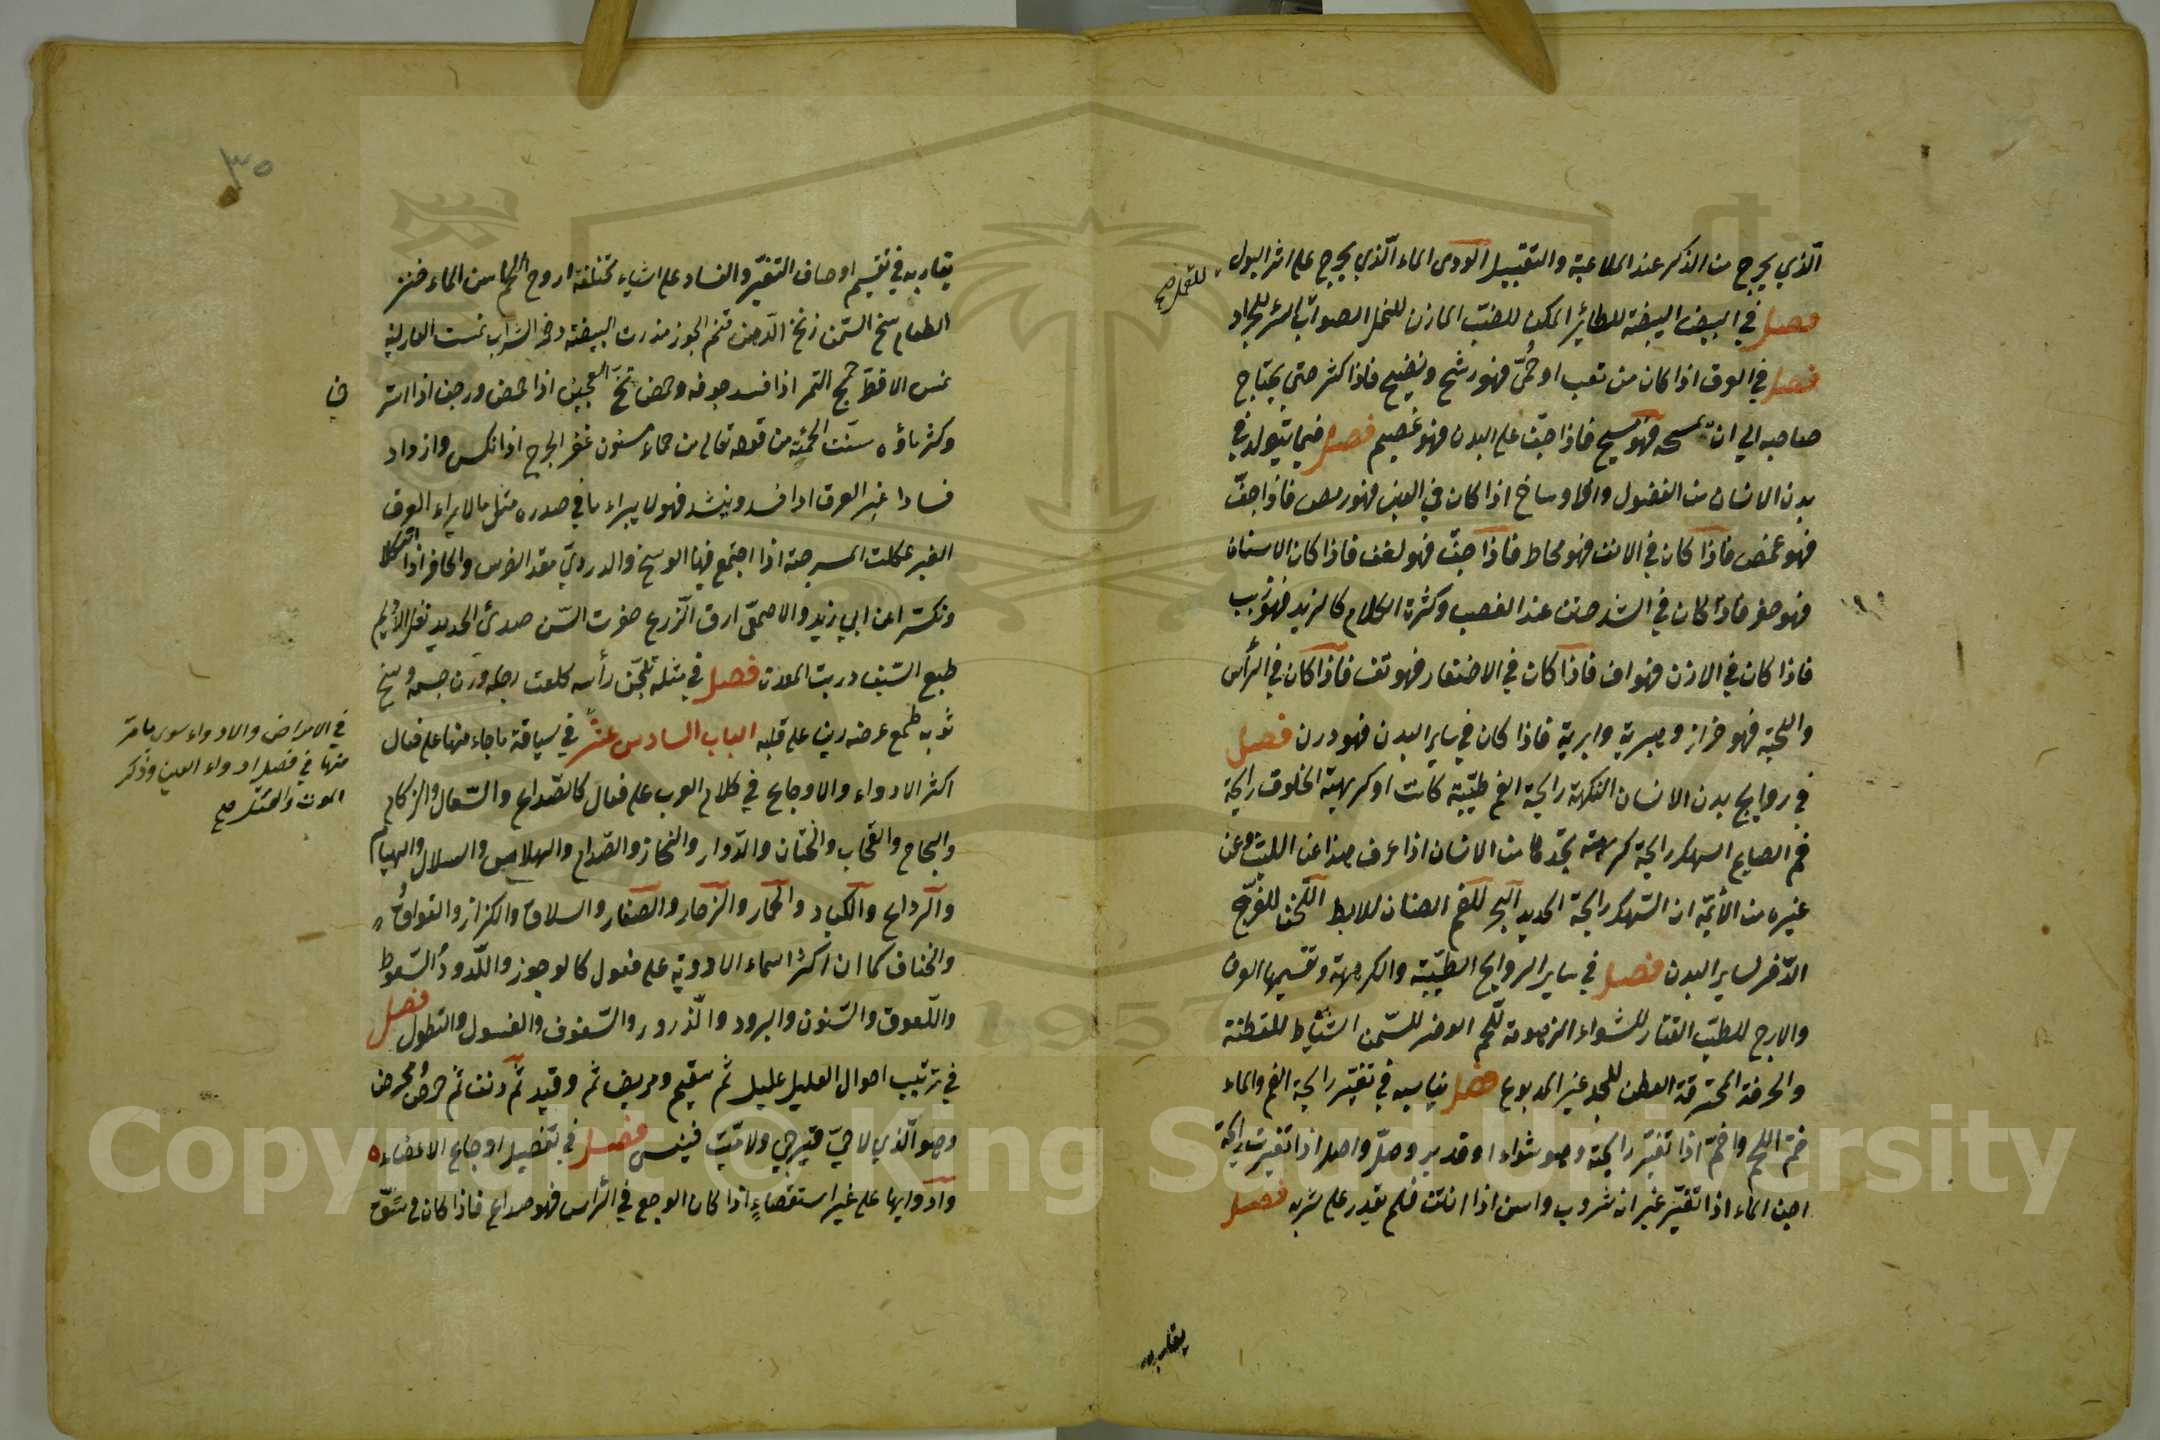 الّذي يخرج من الذكر عند الملاعبة والتقبيل الودى الماء الّذي يخرج على اثر البول
فصل في البيض البيضة للطائر المكن للضبّ المازن للنمل الصواب السّرء للجراد
للقمل صح
فصل في العرق اذا كان من تعب او حُمّى فهو رشح ونضيح فاذا كثر حتى يحتاج
صاحبه الى ان يمسحه فهو مسيح فاذا جفّ على البدن فهو عصيم فصل فيما يتولد في
بدن الانسان من الفضول والاوساخ اذا كان في العين فهو رمص فاذا جفّ
فهو غمص فاذا كان في الانف فهو مخاط فاذا جفّ فهو نغف فاذا كان الاسنان
فهو حفر فاذا كان في الشدقين عند الغضب وكثرة الكلام كالزبد فهو زبب
فاذا كان في الاذن فهو اف فاذا كان في الاضفار فهو تف فاذا كان في الرأس
واللحية فهو حزاز وهبرية وابرية فاذا كان في ساير البدن فهو درن فصل
في روايح بدن الانسان النكهة رايحة الفم طيّبة كانت او كريهة الخلوف رايحة
فم الصايم السهك رايحة كريهة تجدها من الانسان اذا عرف هذا عن الليث وعن
غيره من الأئمّة ان السّهك رايحة الحديد البخر للفم الصنان للابط اللخن للفرج
الدّفر لساير البدن فصل في ساير الروايح الطيّبة والكريهة وتقسيمها العرف
والارج للطيب القتار للشواء الزهومة للحم الوضر للسّمن الشياط للقطنة
والخرقة المحترقة العطن للجلد غير المدبوغ فصل يناسبه في تغيّر رايحة الفم والماء
خمّ اللحم واخمّ اذا تغيّر رايحته وهو شواء او قدير وصلّ واصل اذا تغيرت رايحة
اجن الماء اذا تغيّر غير انه شروب واسن اذا انتن فلم يقدر على شربه فصل
يقاربه
٣٥
يقاربه في تقسيم اوصاف التغيّر والفساد على اشياء مختلفة اروح اللحم اسن الماء خنز
الطعام سنخ السّمن زنخ الدّهن قنم الجوز مذرت البيضة دخن الشراب نمست الغالية
نمس الاقط خمج التمر اذا فسد جوفه وحمض تخّ العجين اذا حمض ورخف اذا استر
خى
وكثر ماؤه سنّت الحمئة من قوله تعالى من حماء مسنون غفر الجرح اذا نكس وازداد
فسادا غبر العرق اذا فسد وينشد فهو لا يبراء ما في صدره مثل مالا يبراء العرق
الغبر عكلت المسرجة اذا اجتمع فيها الوسخ والدردىّ نقد الضرس والحافر اذا ائتكلا
وتكسّرا عن ابي زيد والاصمعّى ارق الزّرع حفرت السّن صدئ الحديد نغل الأديم
طبع السّيف دربت المعدة فصل في مثله تلجّن رأسه كلعت رجله درن جسمه وسخ
ثوبه طمع عرضه رين على قلبه الباب السادس عشر في سياقة ما جاء منها على فعال
في الامراض والادواء سوى ما مرّ
منها في فصل ادواء العين وذكر
الموت والقتل صح
اكثر الادواء والاوجاع في كلام العرب على فعال كالصّداع والسّعال والزكام
والبحاح والقحاب والخنان والدّوار والنحاز والصّدام والهلاس والسلال والهيام
والرداع والكباد والخمار والزحار والصفار والسلاق والكزاز والفواق
والخناق كما ان اكثر اسماء الادوية على فعول كالوجور واللّدود والسّعوط
واللّعوق والسّنون والبرود والذّرور والسّفوف والغسول والنطول فصل
في ترتيب احوال العليل عليل ثم سقيم ومريض ثم وقيد ثمّ دنف ثم حرض ومحرض
وهو الّذي لا حيّ فيرجى ولا ميّت فينسى فصل في تفصيل اوجاع الاعضاء
وادوايها على غير استقصاءٍ اذا كان الوجع في الرّاس فهو صداع فاذا كان في شقّ